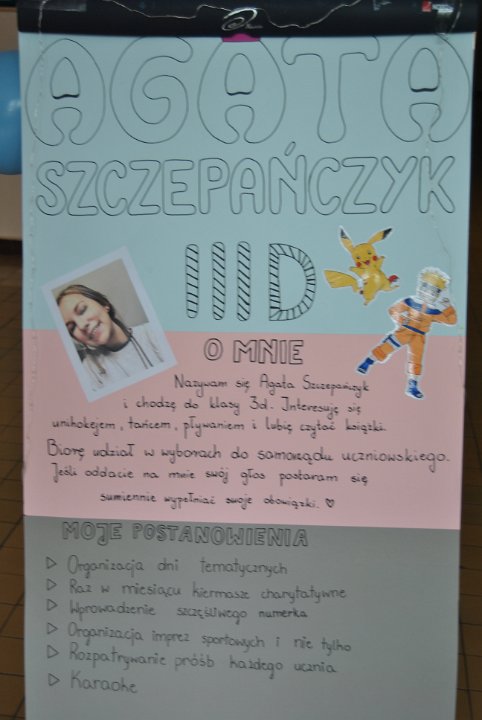 AGATA
SZCZEPAŃCZYK
III D
O MNIE
Nazywam się Agata Szczepańczyk
i chodzę do klasy 3d. Interesuję się
unihokejem, tańcem, pływaniem i lubię czytać książki.
Biorę udział w wyborach do samorządu uczniowskiego.
Jeśli oddacie na mnie swój głos postaram się
sumiennie wypełniać swoje obowiązki. ♡
MOJE POSTANOWIENIA
▷ Organizacja dni tematycznych
▷ Raz w miesiącu kiermasze charytatywne
▷ Wprowadzenie szczęśliwego numerka
▷ Organizacja imprez sportowych i nie tylko
▷ Rozpatrywanie próśb każdego ucznia
▷ Karaoke